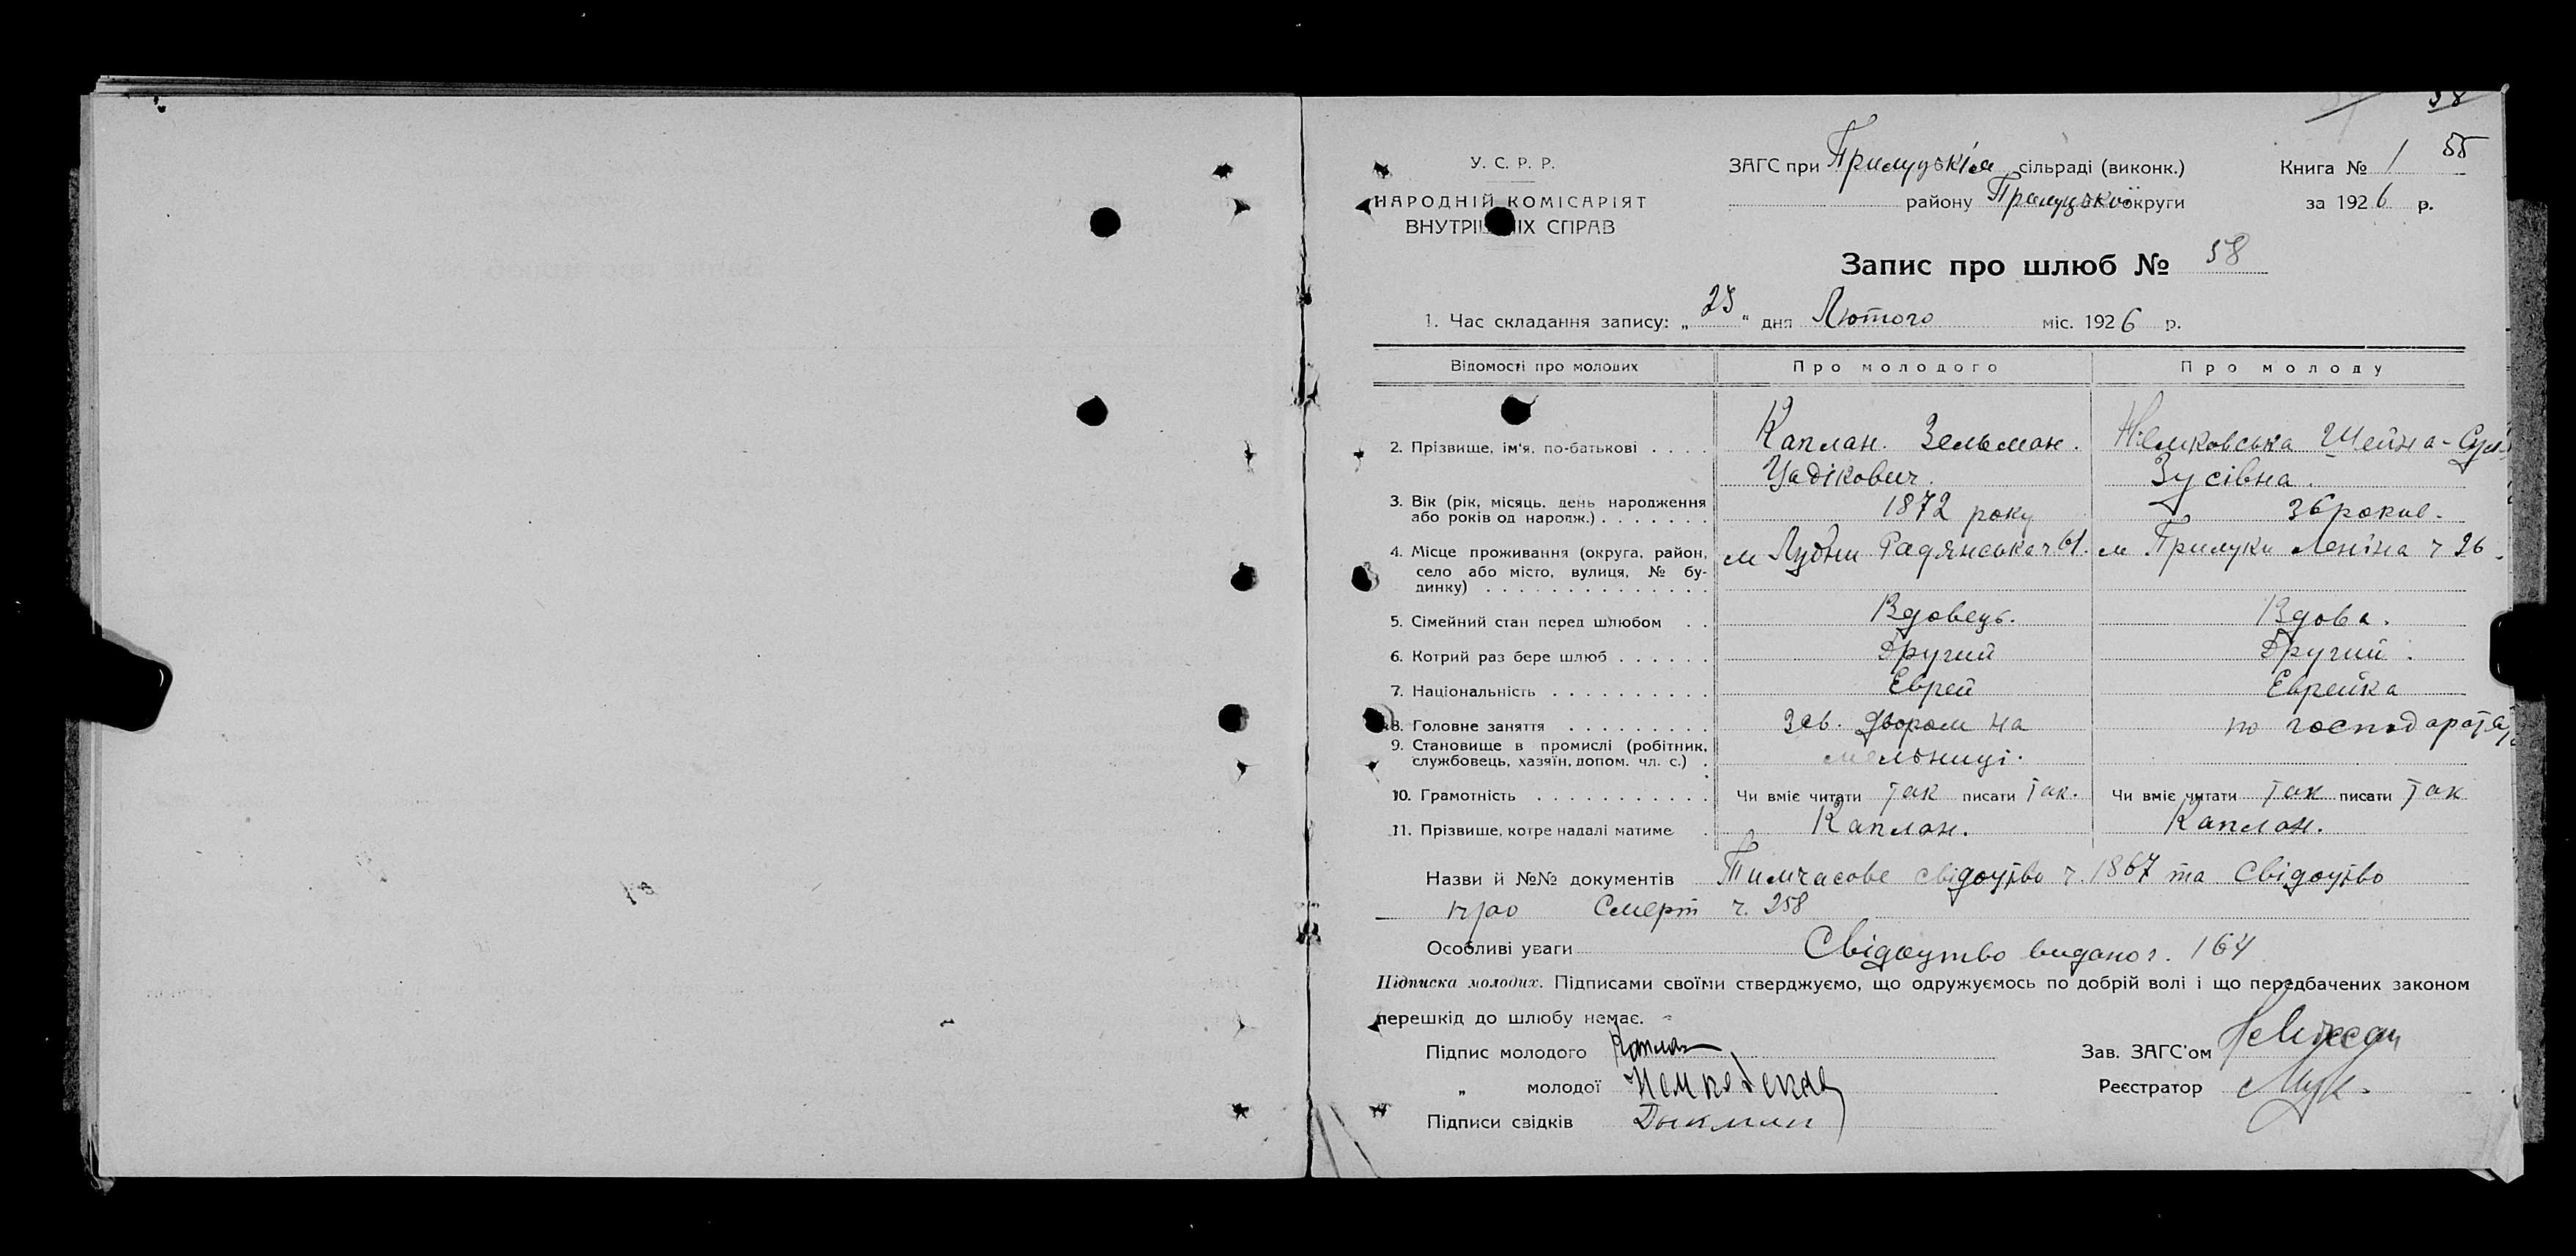 58
У. С. Р. Р.
НАРОДНІЙ КОМІСАРІЯТ
ВНУТРІШНІХ СПРАВ
ЗАГС при Прилуцькім сільраді (виконк.)
району Прилуцької округи
Книга № 1 55
за 1926 р.
Запис про шлюб № 58
1. Час складання запису: „25“ дня Лютого міс. 1926 р.
Відомості про молодих Про молодого Про молоду
2. Прізвище, ім'я, по-батькові Каплан. Зельман. Немковська Шейна-
Цадікович. Зусівна.
3. Вік (рік, місяць, день народження або років од народж.) 1872 року 36 роков.
4. Місце проживання (округа, район, село або місто, вулиця, № будинку) м Лубни Радянська ч 61. м Прилуки Леніна ч 26.
5. Сімейний стан перед шлюбом Вдовець. Вдова.
6. Котрий раз бере шлюб Другий Другий.
7. Національність Еврей Еврейка
8. Головне заняття Зав. двором на по господарст
9. Становище в промислі (робітник, службовець, хазяїн, допом. чл. с.) мельниці.
10. Грамотність Чи вміє читати так писати так. Чи вміє читати так писати так
11. Прізвище, котре надалі матиме Каплан. Каплан.
Назви й №№ документів Тимчасове свідоцтво ч. 1867 та Свідоцтво
про Смерт ч. 258
Особливі уваги Свідоцтво видано ч. 164
Підписка молодих. Підписами своїми стверджуємо, що одружуємось по добрій волі і що передбачених законом
перешкід до шлюбу немає.
Підпис молодого Каплан
Зав. ЗАГС'ом
„ молодої Немковская
Реєстратор
Підписи свідків Дыкман